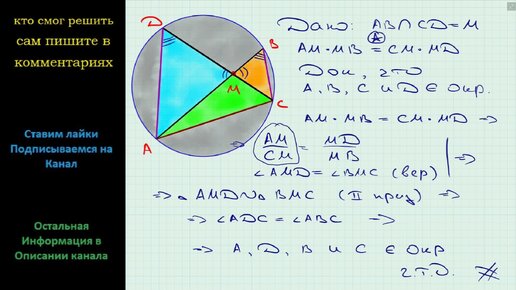 кто смог решить
сам пишите в
комментариях
Ставим лайки
Подписываемся на
Канал
Остальная
Информация в
Описании канала
D
B
M
C
A
Дано: AB∩CD=M
A
AM·MB = CM·MD
Док, ч.т.о
A, B, C и D ∈ Окр.
AM·MB = CM·MD ⇒
⇒ AM/CM = MD/MB
∠AMD = ∠BMC (вер) | ⇒
⇒ △ AMD ∾ △ BMC (II приз) ⇒
⇒ ∠ADC = ∠ABC ⇒
⇒ A, D, B и C ∈ Окр
ч.т.д.